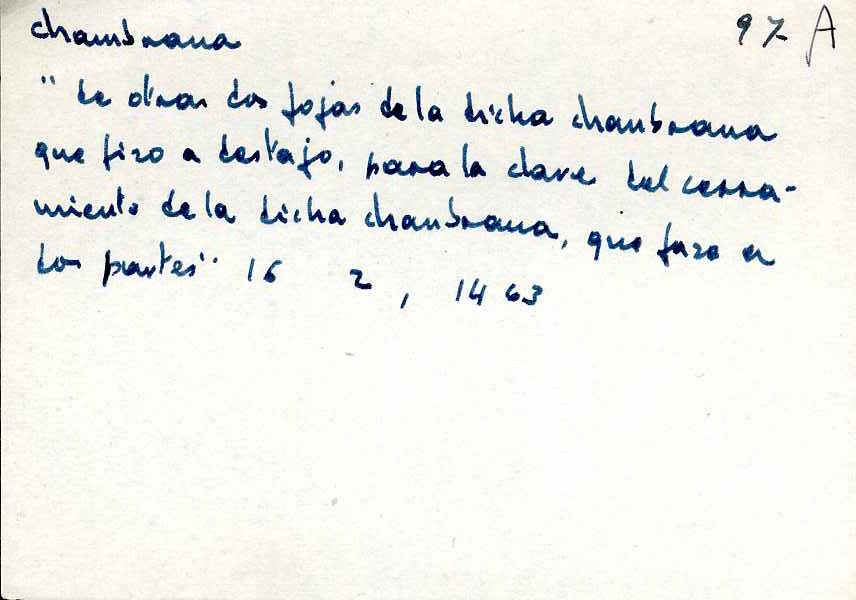 chambrana 97 A
" de otras dos fojas de la dicha chanbrana
que fizo a destajo, para la clave del cerra-
miento de la dicha chanbrana, que faze a
dos partes" 16 2, 1463